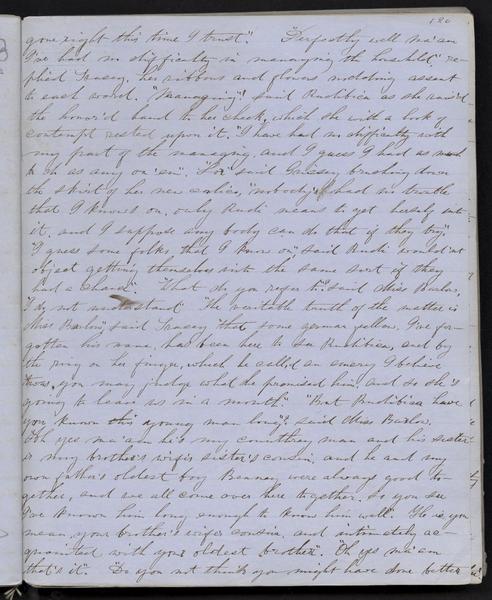 120
gone right this time I trust". "Perfectly well ma'am
I've had no difficulty in managing the household" re-
plied Treasey, her ribbons and flowers nodding assent
to each word. "Managing" said Rudibica as she raised
the honor'd hand to her cheek, which she with a look of
contempt rested upon it, "I have had no difficulty with
my part of the managing, and I guess I had as much
to do as any on 'em". "La" said Treasey, brushing down
the skirt of her new calico, "nobody's had no trouble
that I knows on, only Rudi means to get herself into
it, and I suppose any body can do that if they try".
"I guess some folks that I know on," said Rudi "would'nt
object getting themselves into the same sort if they
had a chance". "What do you refer to" said Miss Barlow,
"I do not understand" "The veritable truth of the matter is
Miss Barlow," said Treasey "that some german fellow, I've for-
gotten his name, has been here to see Rudibica, and by
the ring on her finger, which he called an emery I believe
twas, you may judge what he promised him, and so she's
going to leave us in a month". "But Rudibica have
you known this young man long"? said Miss Barlow.
"Oh yes ma'am he's my countheyman and his sister
is my brother's wife's sister's cousin, and he and my
own father's oldest boy were always good to-
gether, and we all come over here together, so you see
I've known him long enough to know him well". "He is you
mean, your brother's wifes cousin, and intimately ac-
quainted with your oldest brother". "Oh yes ma'am
that's it". "Do you not think you might have done better